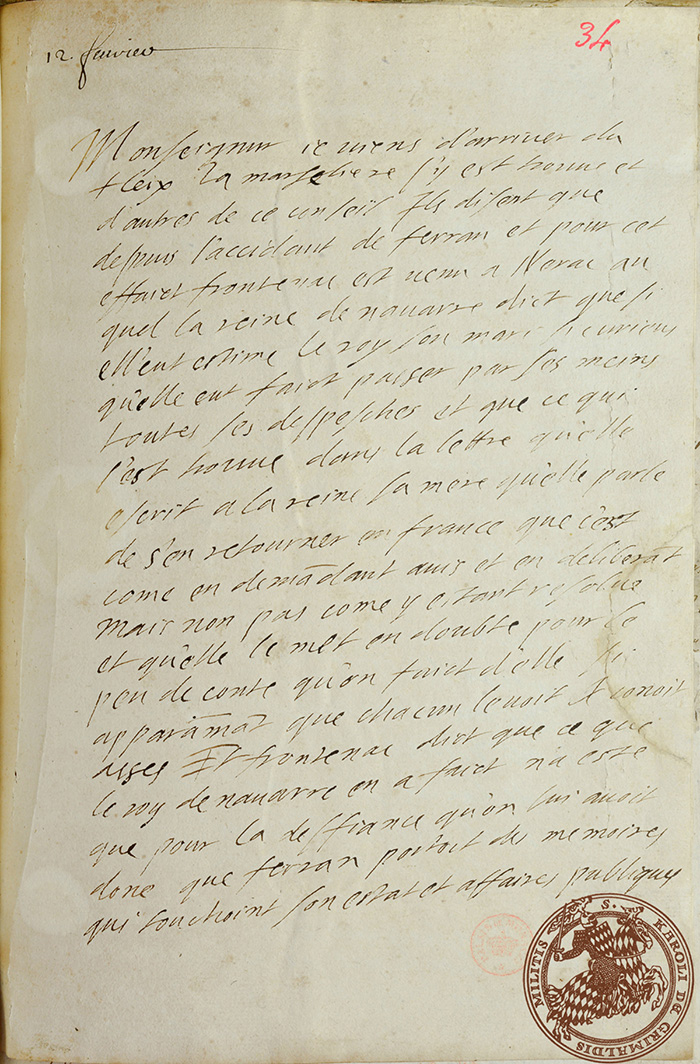 12. Janvier
34
Monseigneur ie viens d'arriver du
fleix la marseliere s'y est trouvé et
d'autres de ce conseil Ils disent que
despuis l'accidant de ferran et pour cet
effaict frontenac est venu a Nerac au
quel la reine de navarre dict que si
ell'eut estimé le roy son mari si curieus
qu'elle eut faict passer par ses meins
toutes ses despesches et que ce qui
s'est trouvé dans la lettre qu'elle
escrit a la reine sa mere qu'elle parle
de s'en retourner en france que c'est
come en demādant avis et en deliberāt
mais non pas come y estant resolue
et qu'elle le met en doubte pour le
peu de conte qu'on faict d'elle si
apparāmāt que chacun le voit et conoit
asses Et frontenac dict que ce que
le roy de navarre en a faict n'a esté
que pour la deffiance qu'on lui avoit
doné que ferran portoit des memoires
qui touchoint son estat et affaires publiques
MILITIS S. KHROLI DE GRIMALDIS